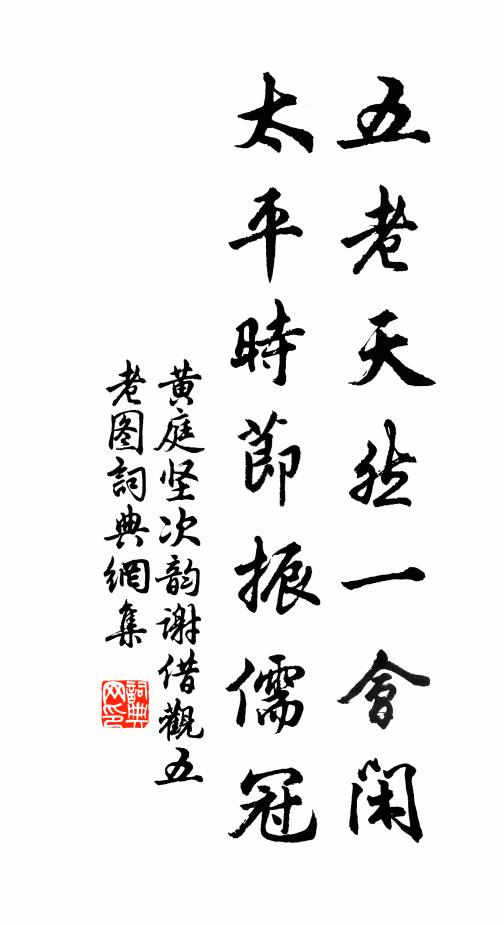 五老天然一會闲
太平時節振儒冠
黄庭坚次韵谢借觀五
老图詞典網集
詞典
网印